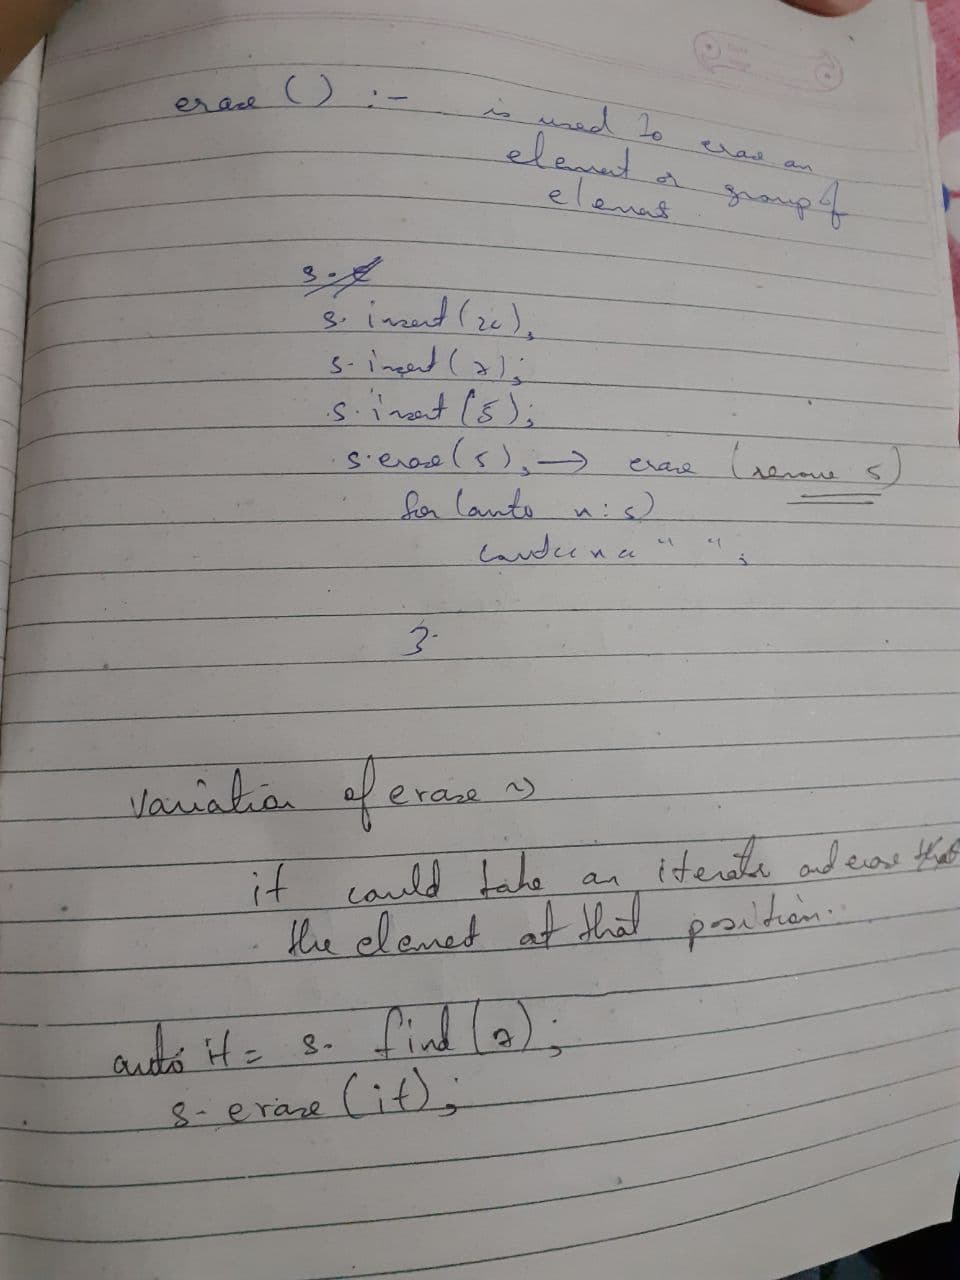 erase () :- is used to erase an
element or group of
elemet
s.e
s. insert (20);
s. insert (7);
s. insert (5);
s. erase (5); → erase (remove 5)
for (auto n : s)
cout << n << " ";
}
variation of erase ~)
it could take an iterator and erase that
the elemet at that position.
auto it = s. find (7);
s. erase (it);